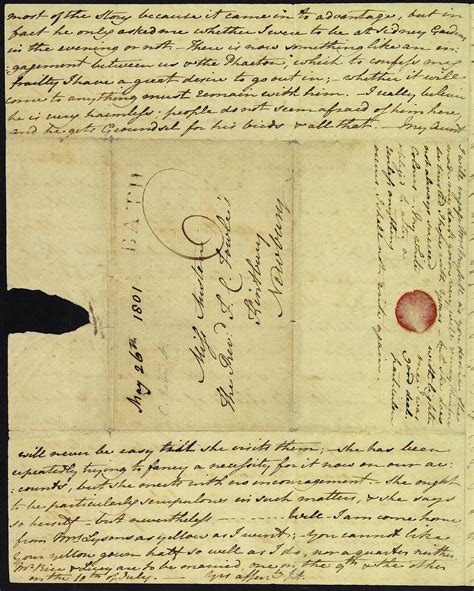 most of the Story because it came in to advantage, but in
fact he only asked me whether I were to be at Sidney Gardens
in the evening or not. — There is now something like an en
:gagement between us & the Phaeton, which to confess my
frailty I have a great desire to go out in; — whether it will
come to anything must remain with him. — I really beleive
he is very harmless; people do not seem afraid of him here,
and he gets Groundsel for his birds & all that. — My Aunt
BATH
May 26th 1801
Miss Austen
The Revd F. C. Fowle's
Kintbury
Newbury
will never be easy till she visits them; — she has been
repeatedly trying to fancy a necessity for it now on our ac
:counts, but she meets with no encouragement. — She ought
to be particularly scrupulous in such matters, & she says
so herself — but nevertheless — Well — I am come home
from Mrs Lysons as yellow as I went; — You cannot like
your yellow gown half so well as I do, nor a quarter neither.
Mr Rice & Lucy are to be married, one on the 9th & the other
on the 10th of July. — Yrs affec: J A.